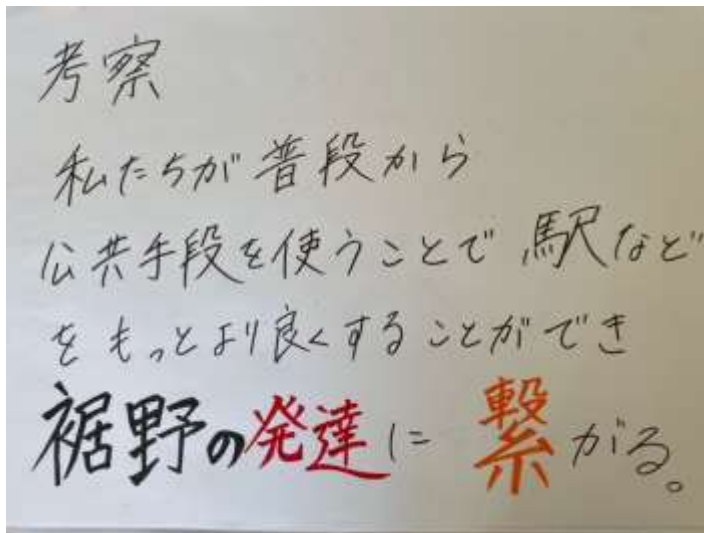 考察
私たちが普段から
公共手段を使うことで駅など
をもっとより良くすることができ
裾野の発達に繋がる。